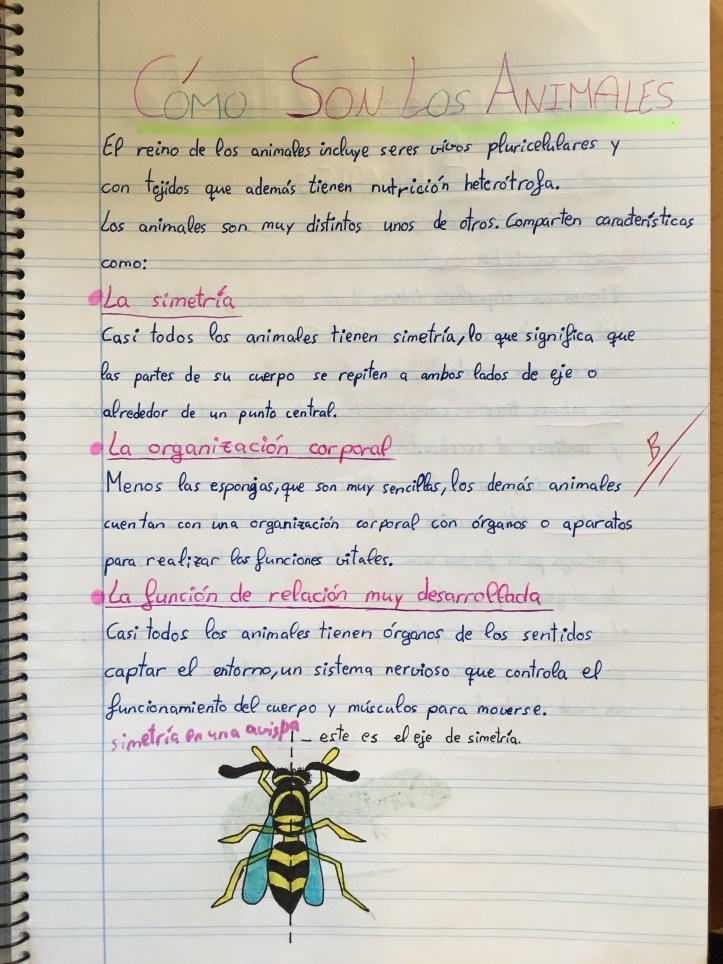 CÓMO SON LOS ANIMALES
El reino de los animales incluye seres vivos pluricelulares y
con tejidos que además tienen nutrición heterótrofa.
Los animales son muy distintos unos de otros. Comparten características
como:
La simetría
Casi todos los animales tienen simetría, lo que significa que
las partes de su cuerpo se repiten a ambos lados de eje o
alrededor de un punto central.
La organización corporal
B
Menos las esponjas, que son muy sencillas, los demás animales
cuentan con una organización corporal con órganos o aparatos
para realizar las funciones vitales.
La función de relación muy desarrollada
Casi todos los animales tienen órganos de los sentidos
captar el entorno, un sistema nervioso que controla el
funcionamiento del cuerpo y músculos para moverse.
simetría en una avispa
este es el eje de simetría.